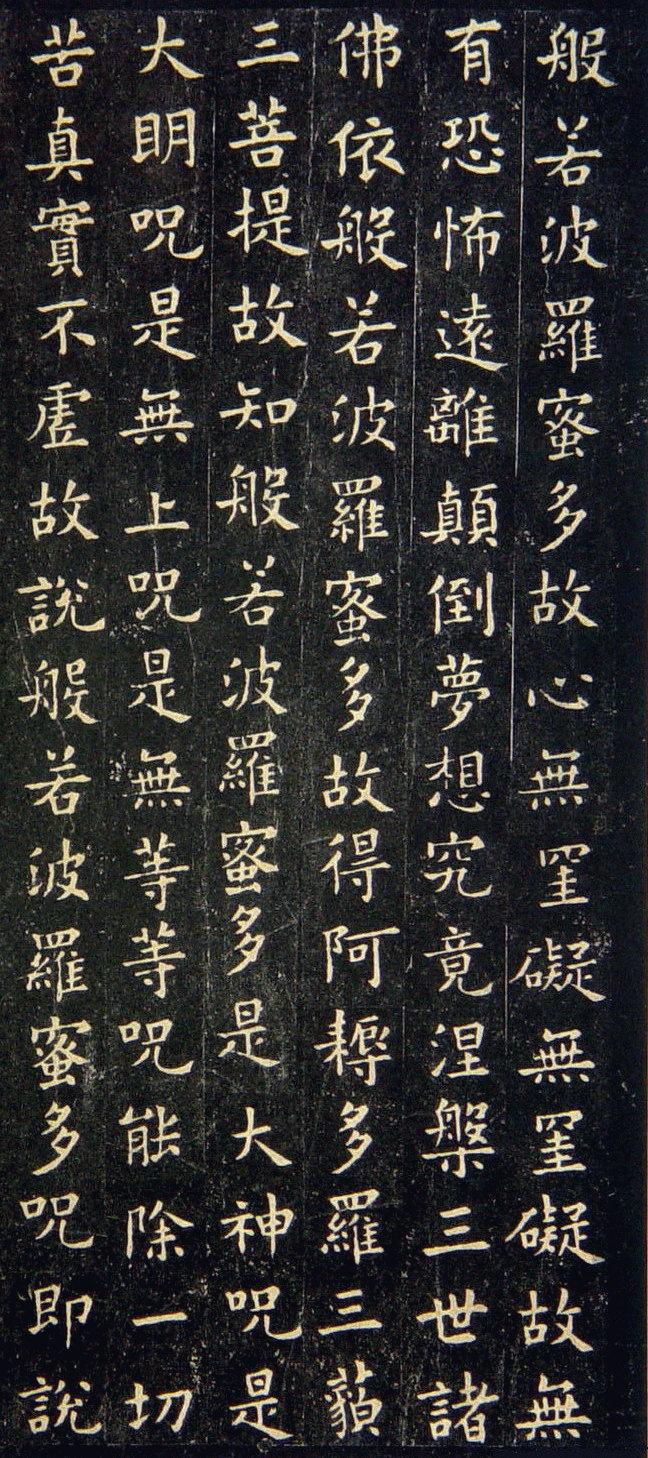 般若波羅蜜多故心無罣礙無罣礙故無
有恐怖遠離顛倒夢想究竟涅槃三世諸
佛依般若波羅蜜多故得阿耨多羅三藐
三菩提故知般若波羅蜜多是大神咒是
大明咒是無上咒是無等等咒能除一切
苦真實不虛故說般若波羅蜜多咒即說